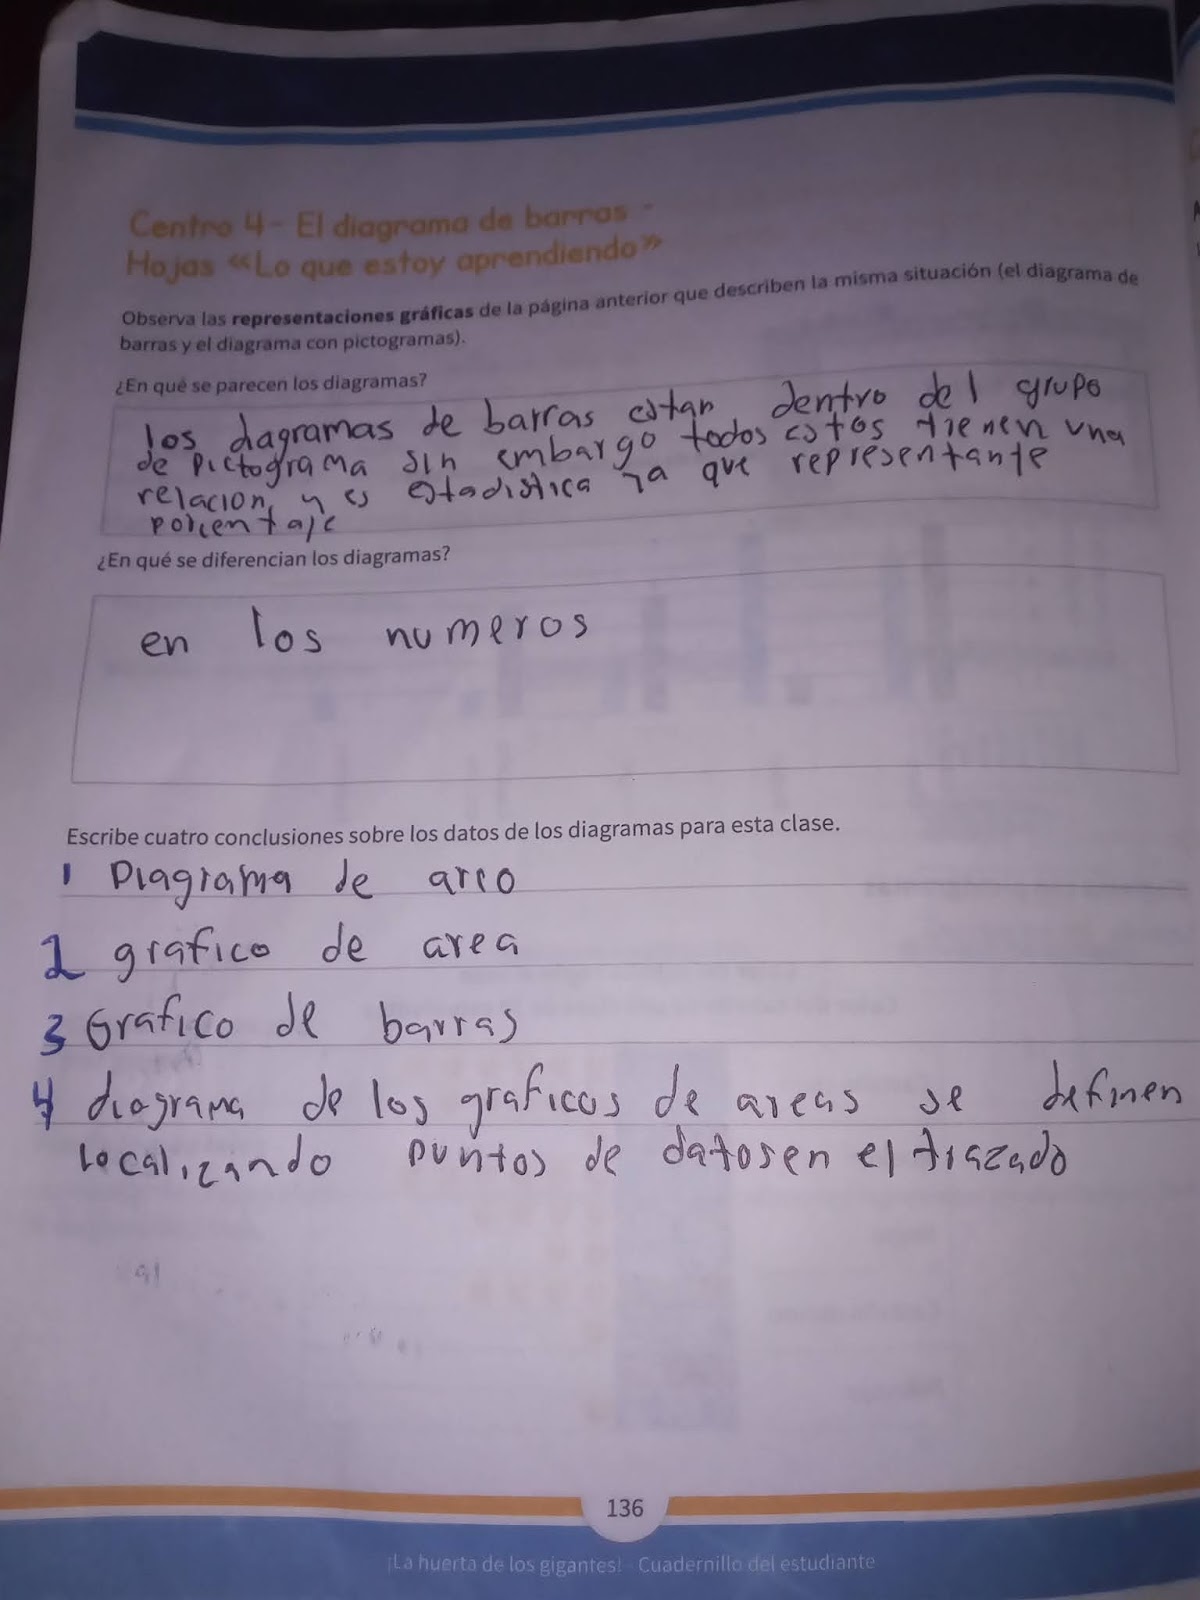 Centro 4 - El diagrama de barras -
Hojas «Lo que estoy aprendiendo»
Observa las representaciones gráficas de la página anterior que describen la misma situación (el diagrama de
barras y el diagrama con pictogramas).
¿En qué se parecen los diagramas?
los diagramas de barras estan dentro del grupo
de pictograma sin embargo todos estos tienen una
relacion y es estadistica ya que representante
porcentaje
¿En qué se diferencian los diagramas?
en los numeros
Escribe cuatro conclusiones sobre los datos de los diagramas para esta clase.
1 Diagrama de arco
2 grafico de area
3 Grafico de barras
4 diagrama de los graficos de areas se definen
localizando puntos de datosen el trazado
136
¡La huerta de los gigantes! - Cuadernillo del estudiante